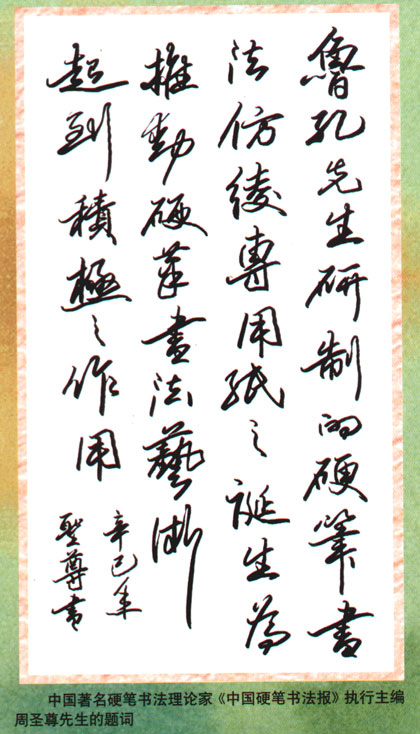 魯孔先生研制的硬筆書
法仿綾專用紙之誕生為
推動硬筆書法藝術
起到積極之作用
辛巳年
聖尊書
中国著名硬笔书法理论家《中国硬笔书法报》执行主编
周圣尊先生的题词